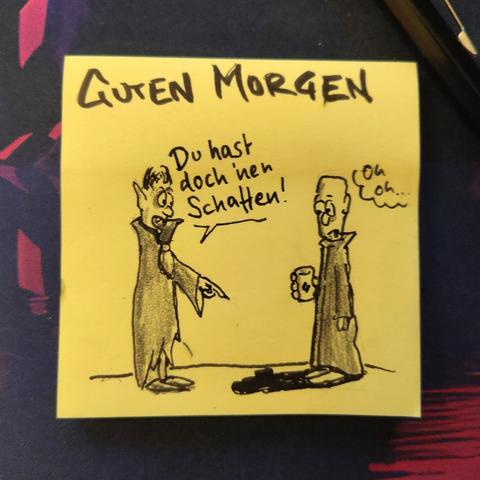 GUTEN MORGEN
Du hast
doch 'nen
Schatten!
Oh
oh...